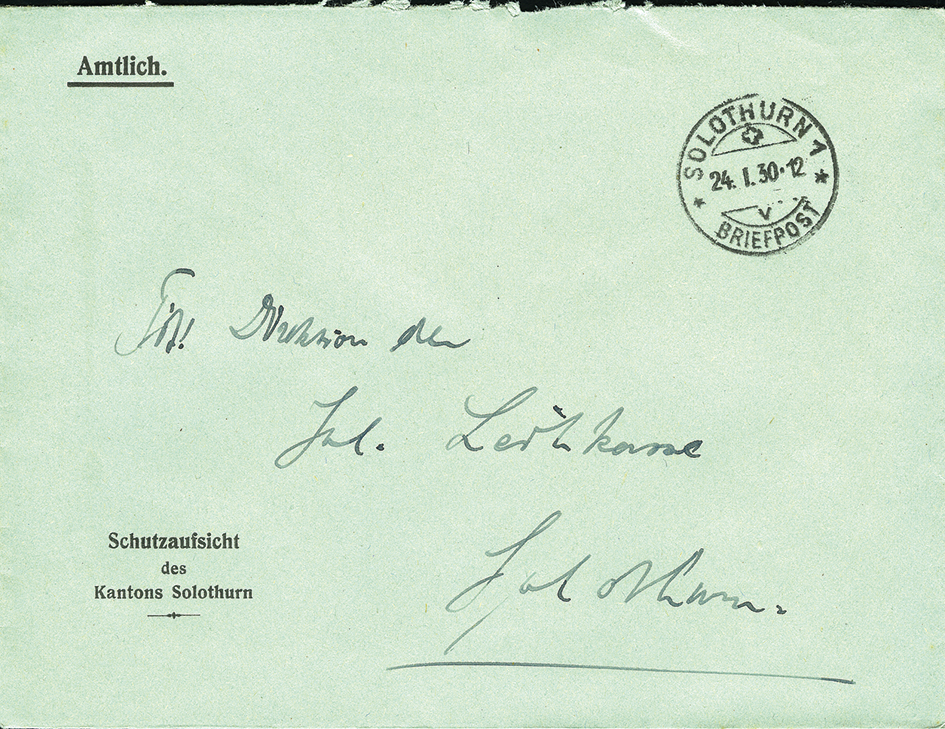 Amtlich.
SOLOTHURN 1
24. I. 30·12
V
BRIEFPOST
Tit. Direktion der
Sol. Leihkasse
Solothurn.
Schutzaufsicht
des
Kantons Solothurn